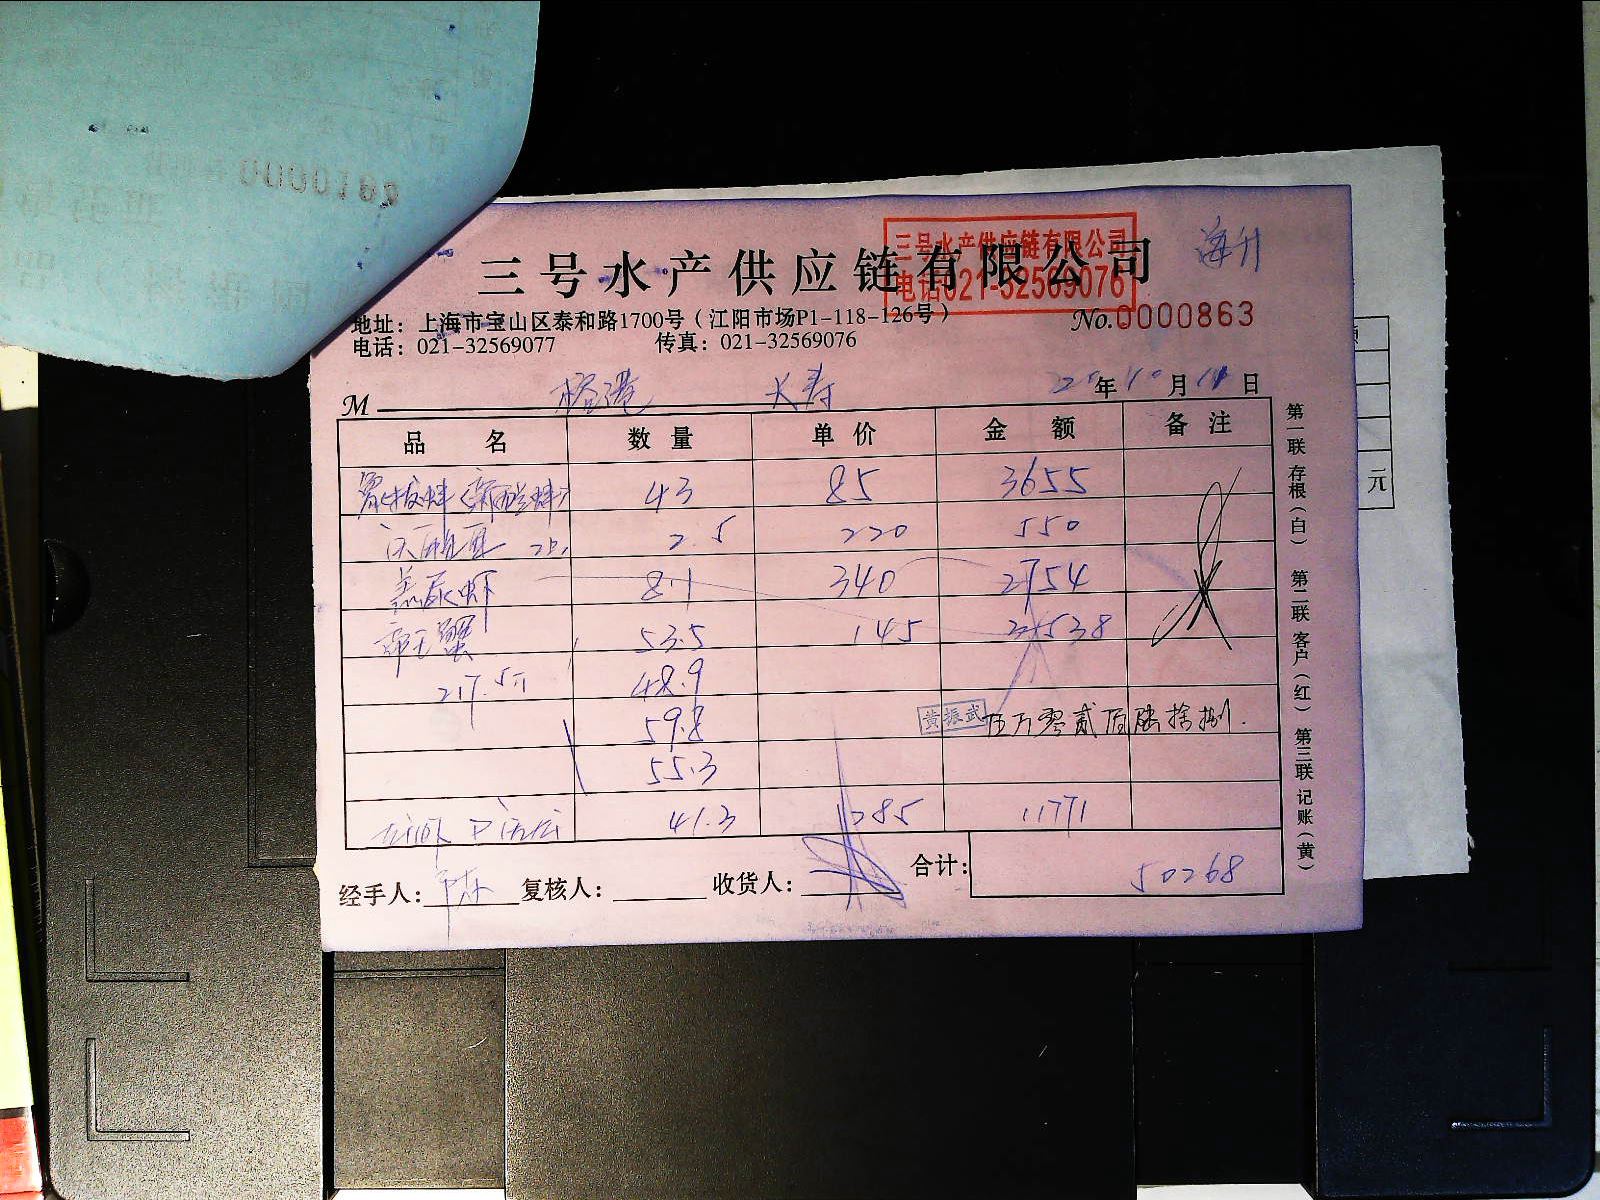 三号水产供应链有限公司
三号水产供应链有限公司
电话021-32569076
海升
地址：上海市宝山区泰和路1700号（江阳市场P1-118-126号）
No.0000863
电话：021-32569077 传真：021-32569076
M 榕港 长寿 20年10月11日
品名 数量 单价 金额 备注
43 85 3655
2.5 220 550
8.1 340 2754
帝王蟹 53.5 145 31538
217.5 48.9
59.8
黄振武 伍万零贰佰陆拾捌.
55.3
41.3 285 11771
经手人： 陈 复核人： 收货人： 合计： 50268
第一联 存根（白） 第二联 客户（红） 第三联 记账（黄）
元